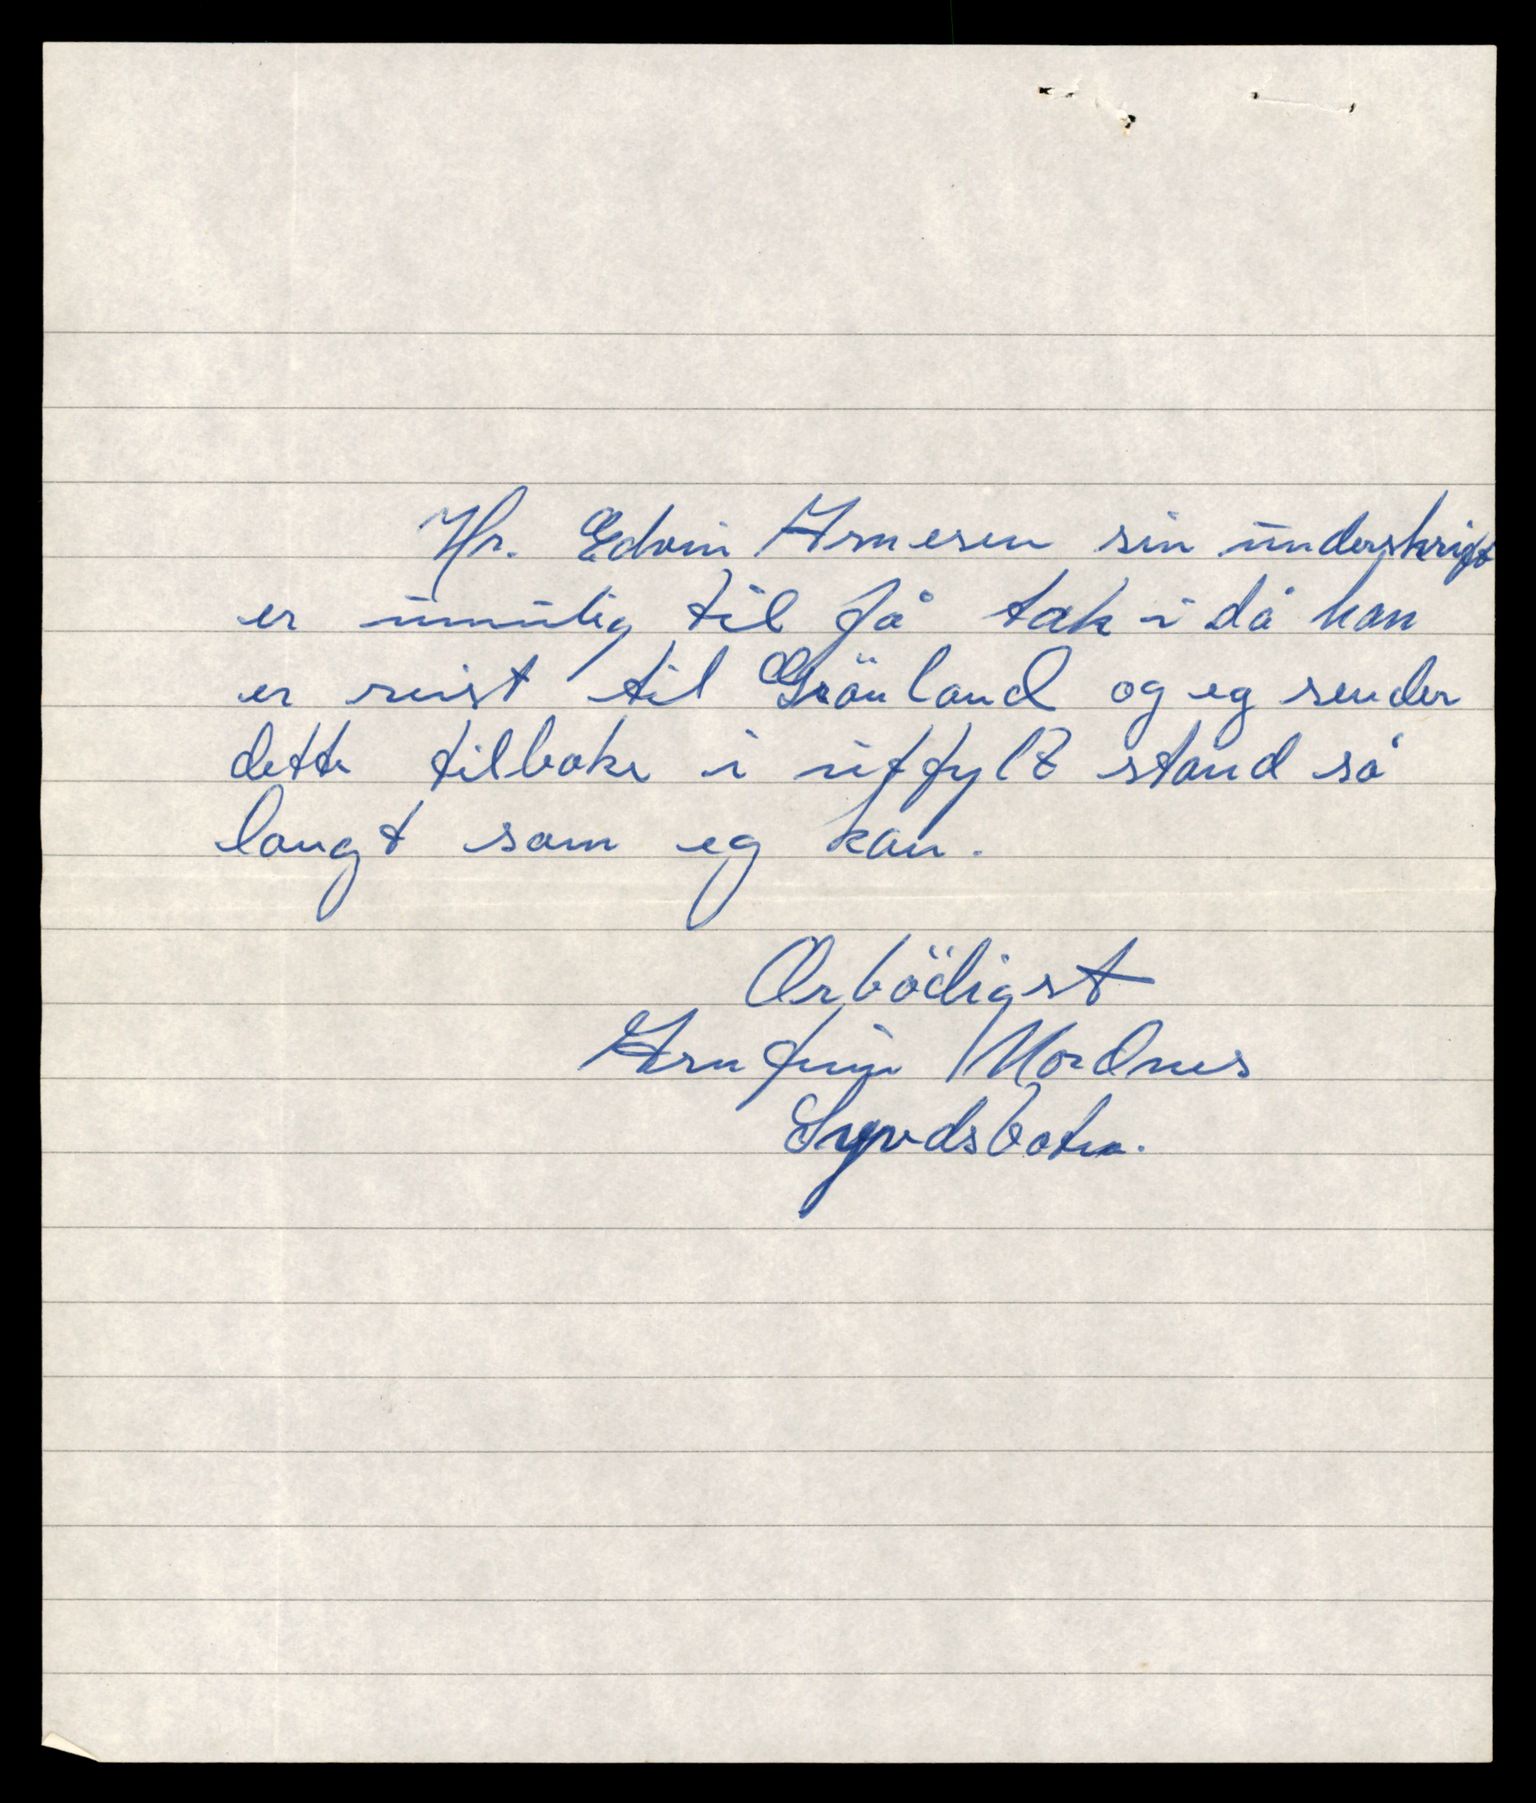 Hr. Edvin Arnesen sin underskrift
er umulig til få tak i då han
er reist til Grönland og eg sender
dette tilbake i utfylt stand så
langt som eg kan.
Ærbödigst
Arnfinn Nordnes
Syvdsbotn.